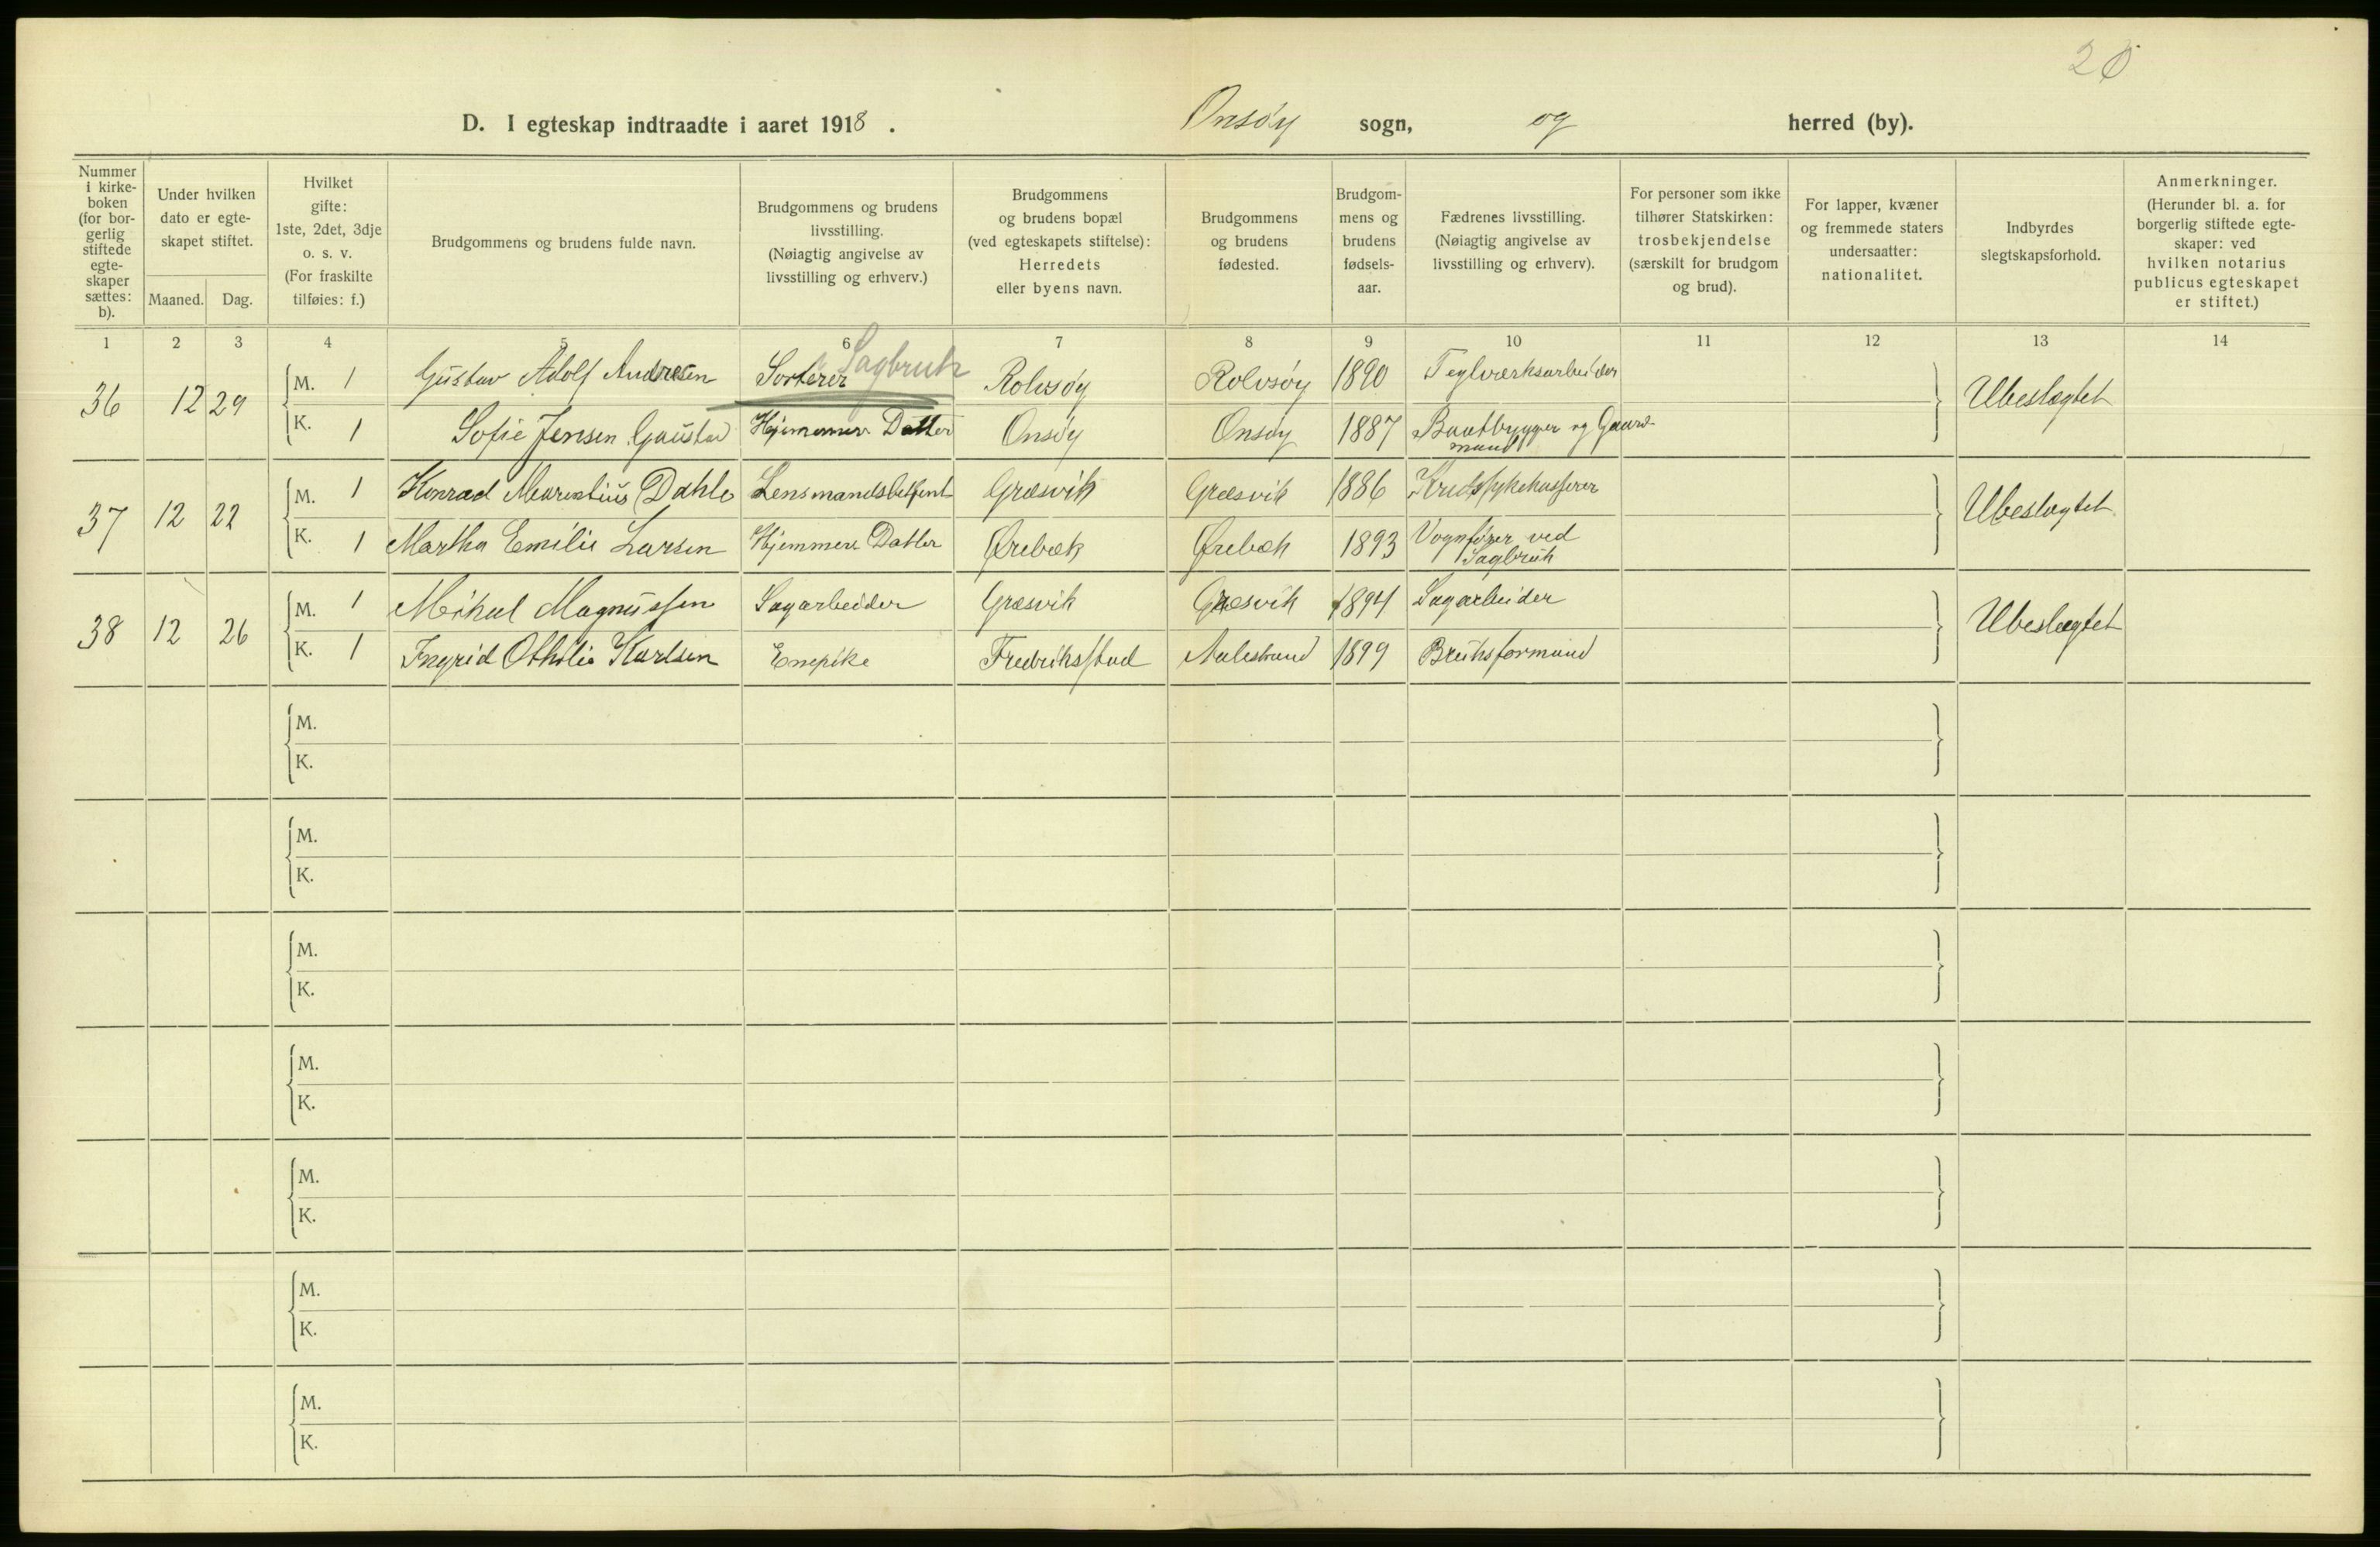 20
D. I egteskap indtraadte i aaret 1918. Onsøy sogn, og herred (by).
Nummer i kirkeboken (for borgerlig stiftede egteskaper sættes: b).
Under hvilken dato er egteskapet stiftet.
Maaned. Dag.
Hvilket gifte: 1ste, 2det, 3dje o. s. v. (For fraskilte tilføies: f.)
Brudgommens og brudens fulde navn.
Brudgommens og brudens livsstilling. (Nøiagtig angivelse av livsstilling og erhverv.)
Brudgommens og brudens bopæl (ved egteskapets stiftelse): Herredets eller byens navn.
Brudgommens og brudens fødested.
Brudgommens og brudens fødselsaar.
Fædrenes livsstilling. (Nøiagtig angivelse av livsstilling og erhverv).
For personer som ikke tilhører Statskirken: trosbekjendelse (særskilt for brudgom og brud).
For lapper, kvæner og fremmede staters undersaatter: nationalitet.
Indbyrdes slegtskapsforhold.
Anmerkninger. (Herunder bl. a. for borgerlig stiftede egteskaper: ved hvilken notarius publicus egteskapet er stiftet.)
1 2 3 4 5 6 7 8 9 10 11 12 13 14
36 12 29 M. 1 Gustav Adolf Andresen Sorterer Sagbruk Rolvsøy Rolvsøy 1890 Teglverksarbeider Ubeslægtet
K. 1 Sofie Jensen Gaustad Hjemmev Datter Onsøy Onsøy 1887 Baatbygger og Gaardmand
37 12 22 M. 1 Konrad Marentius Dahle Lensmandsbetjent Græsvik Græsvik 1886 Ubeslægtet
K. 1 Martha Emilie Larsen Hjemmev Datter Ørebæk Ørebæk 1893 Vognfører ved Sagbruk
38 12 26 M. 1 Mikal Magnussen Sagarbeider Græsvik Græsvik 1894 Sagarbeider Ubeslægtet
K. 1 Ingrid Othilie Karlsen Enepike Fredriksstad Aalesund 1899 Bruksformand
M.
K.
M.
K.
M.
K.
M.
K.
M.
K.
M.
K.
M.
K.